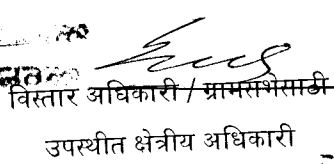 विस्तार अधिकारी / ग्रामसभेसाठी
उपस्थीत क्षेत्रीय अधिकारी